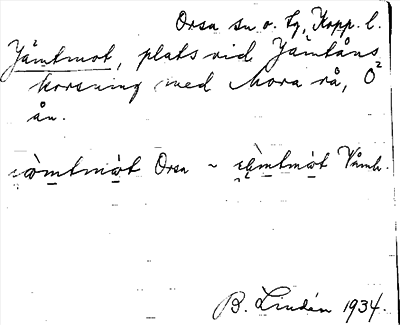 Orsa sn o. tg, Kopp. l.
Jämtmot, plats vid Jämtåns
korsning med Mora rå, Ö
ån.
Orsa ~ Våmh.
B. Lindén 1934.